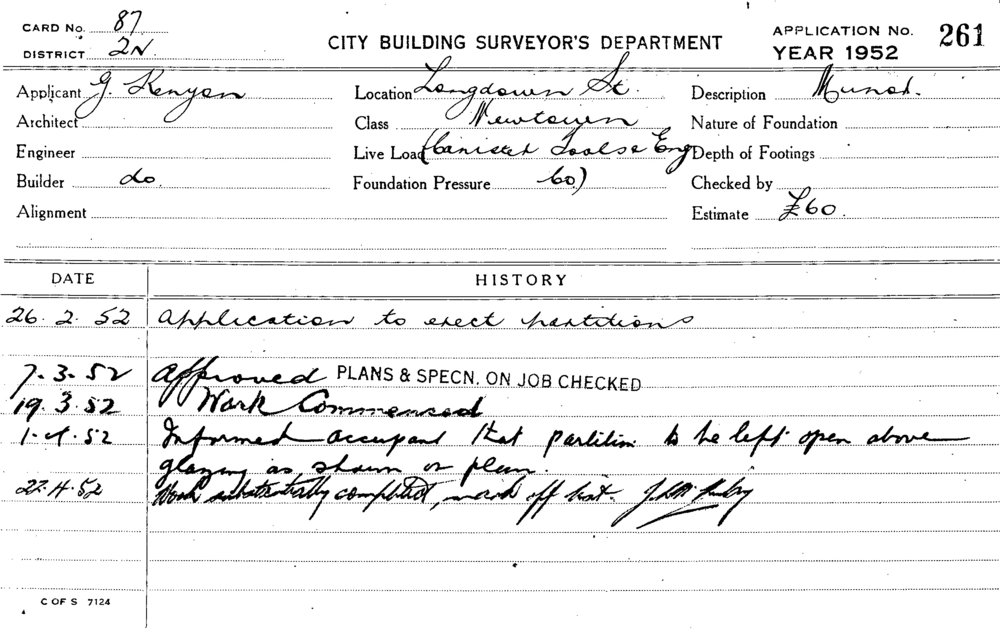 CARD No. 87
DISTRICT 2N.
CITY BUILDING SURVEYOR'S DEPARTMENT
APPLICATION No. 261
YEAR 1952
Applicant G. Kenyon Location Longdown St. Description
Architect Class Newtown Nature of Foundation
Engineer Live Load (Canister Tools & Eng Depth of Footings
Builder do. Foundation Pressure Co.) Checked by
Alignment Estimate £60.
DATE HISTORY
26. 2. 52 Application to erect partitions
7. 3. 52 Approved PLANS & SPECN. ON JOB CHECKED
19. 3. 52 Work Commenced
1. 4. 52 Informed occupant that partition to be left open above
glazing as shown on plan.
22. 4. 52 Work substantially completed, mark off list.
C OF S 7124